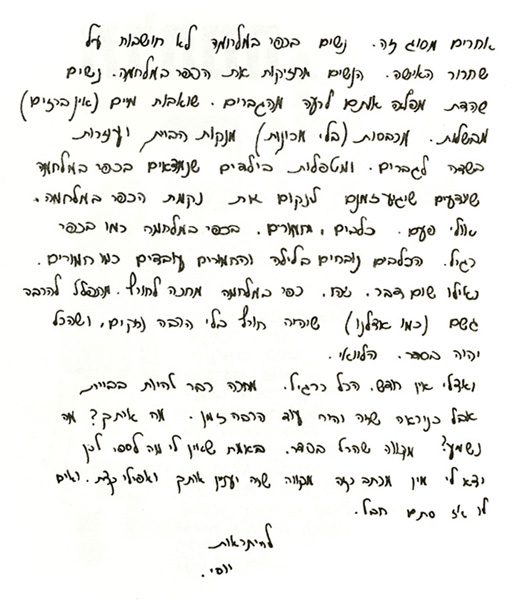 אחרים מסוג זה. נשים בכפר במלחמה לא חושבות על
שחרור האישה. הנשים מחזיקות את הכפר במלחמה. נשים
שהדת מפלה אותם לרעה מהגברים. שואבות מים (אין ברזים)
מבשלות. מכבסות (בלי מכונות) מנקות הבית ועוזרות
בשדה לגברים. ומטפלות בילדים שנמצאים בכפר במלחמה
שיודעים שיגיע זמנם לנקום את נקמת הכפר במלחמה.
אולי פעם. כלבים, חמורים. בכפר במלחמה כמו בכפר
רגיל. הכלבים נובחים בלילה והחמורים עובדים כמו חמורים.
כאילו שום דבר. כפר במלחמה מחכה לחורף. מתפלל להרבה
גשם (כמו אצלנו) שיהיה חורף בלי הרבה נזקים, ושהכל
יהיה בסדר. הלוואי.
ואצלי אין חדש. הכל כרגיל. מחכה כבר להיות בבית
אבל כנראה שזה יהיה עוד הרבה זמן. מה איתך? מה
נשמע? מקווה שהכל בסדר. באמת שאין לי מה לספר לכן
יצא לי מין מכתב כזה מקווה שזה יעניין אותך ואפילו קצת. ואם
לא אז סתם חבל.
להתראות
יוסי.